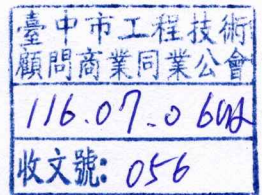 臺中市工程技術
顧問商業同業公會
116.07.06
收文號: 056